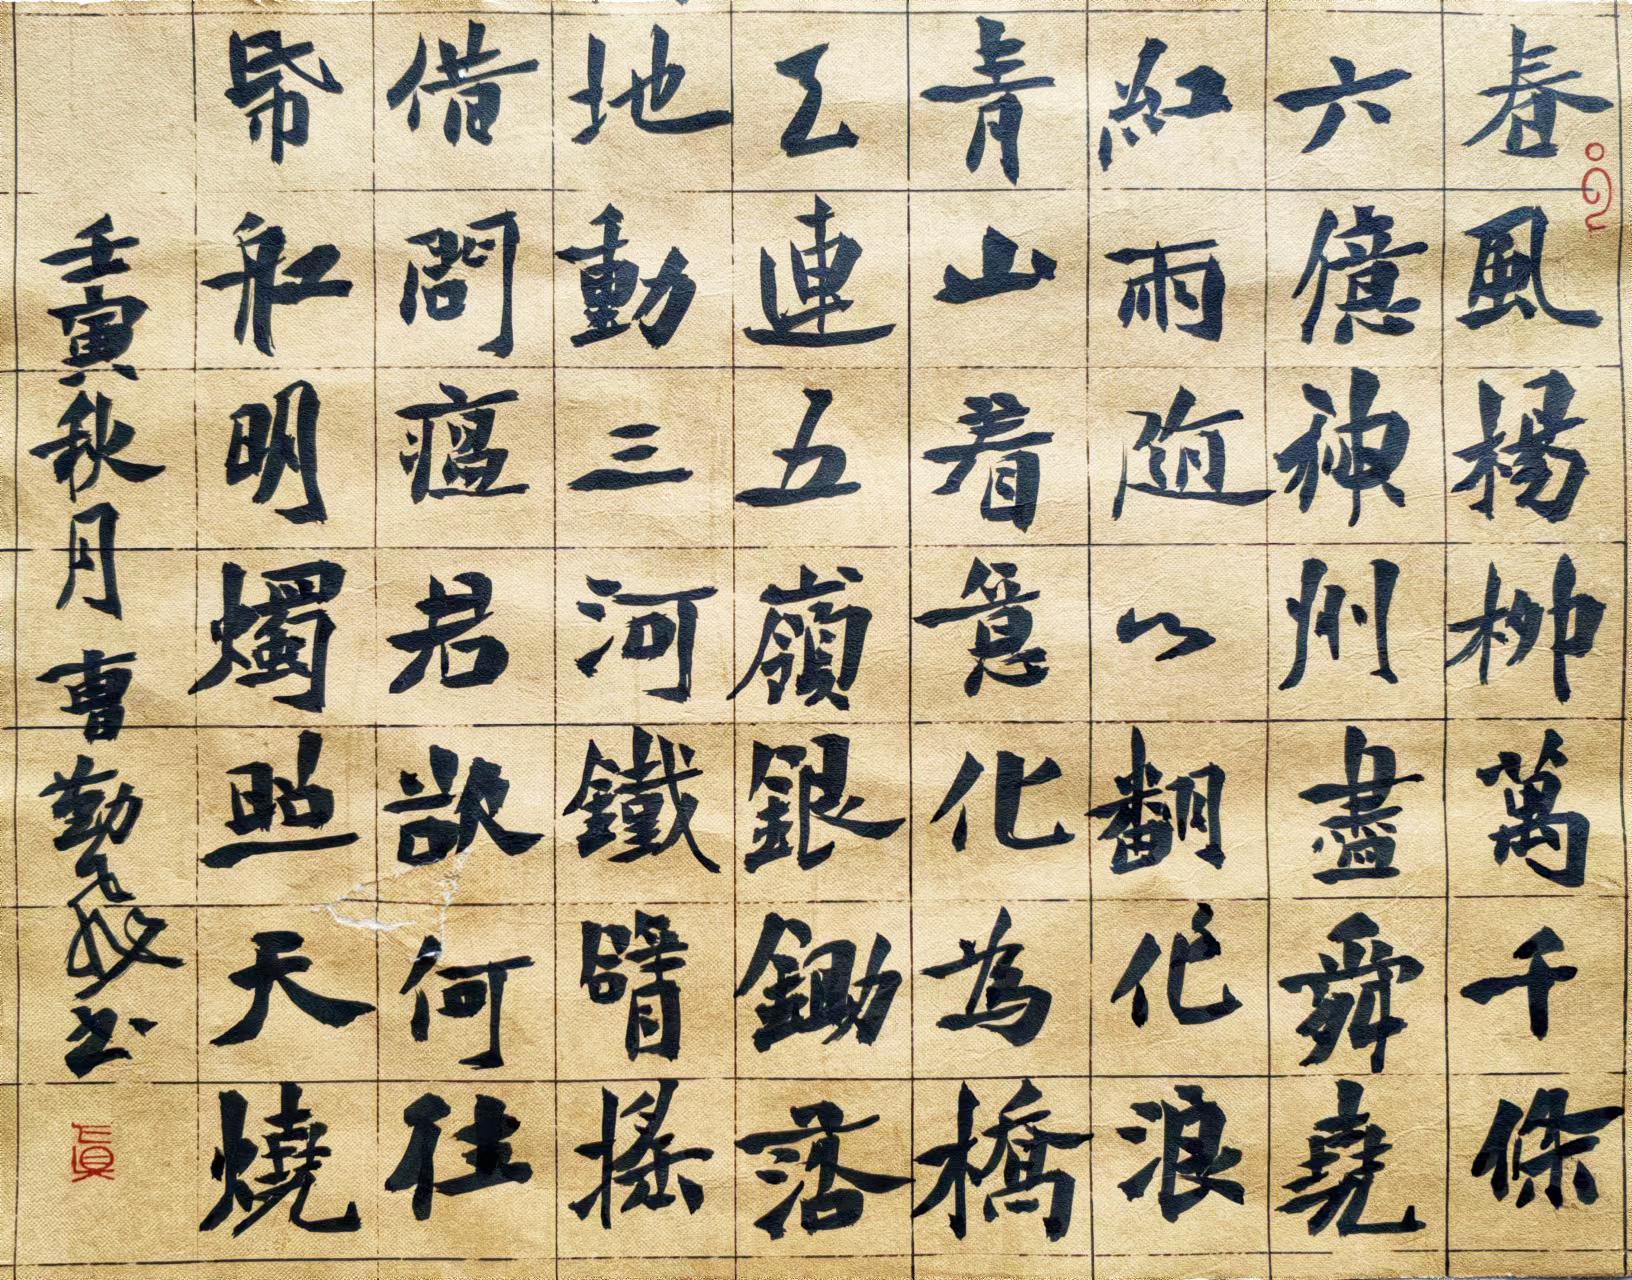 春風楊柳萬千條
六億神州盡舜堯
紅雨隨心翻作浪
青山着意化為橋
天連五嶺銀鋤落
地動三河鐵臂搖
借問瘟君欲何往
帋舡明燭照天燒
壬寅秋月 曹勤書